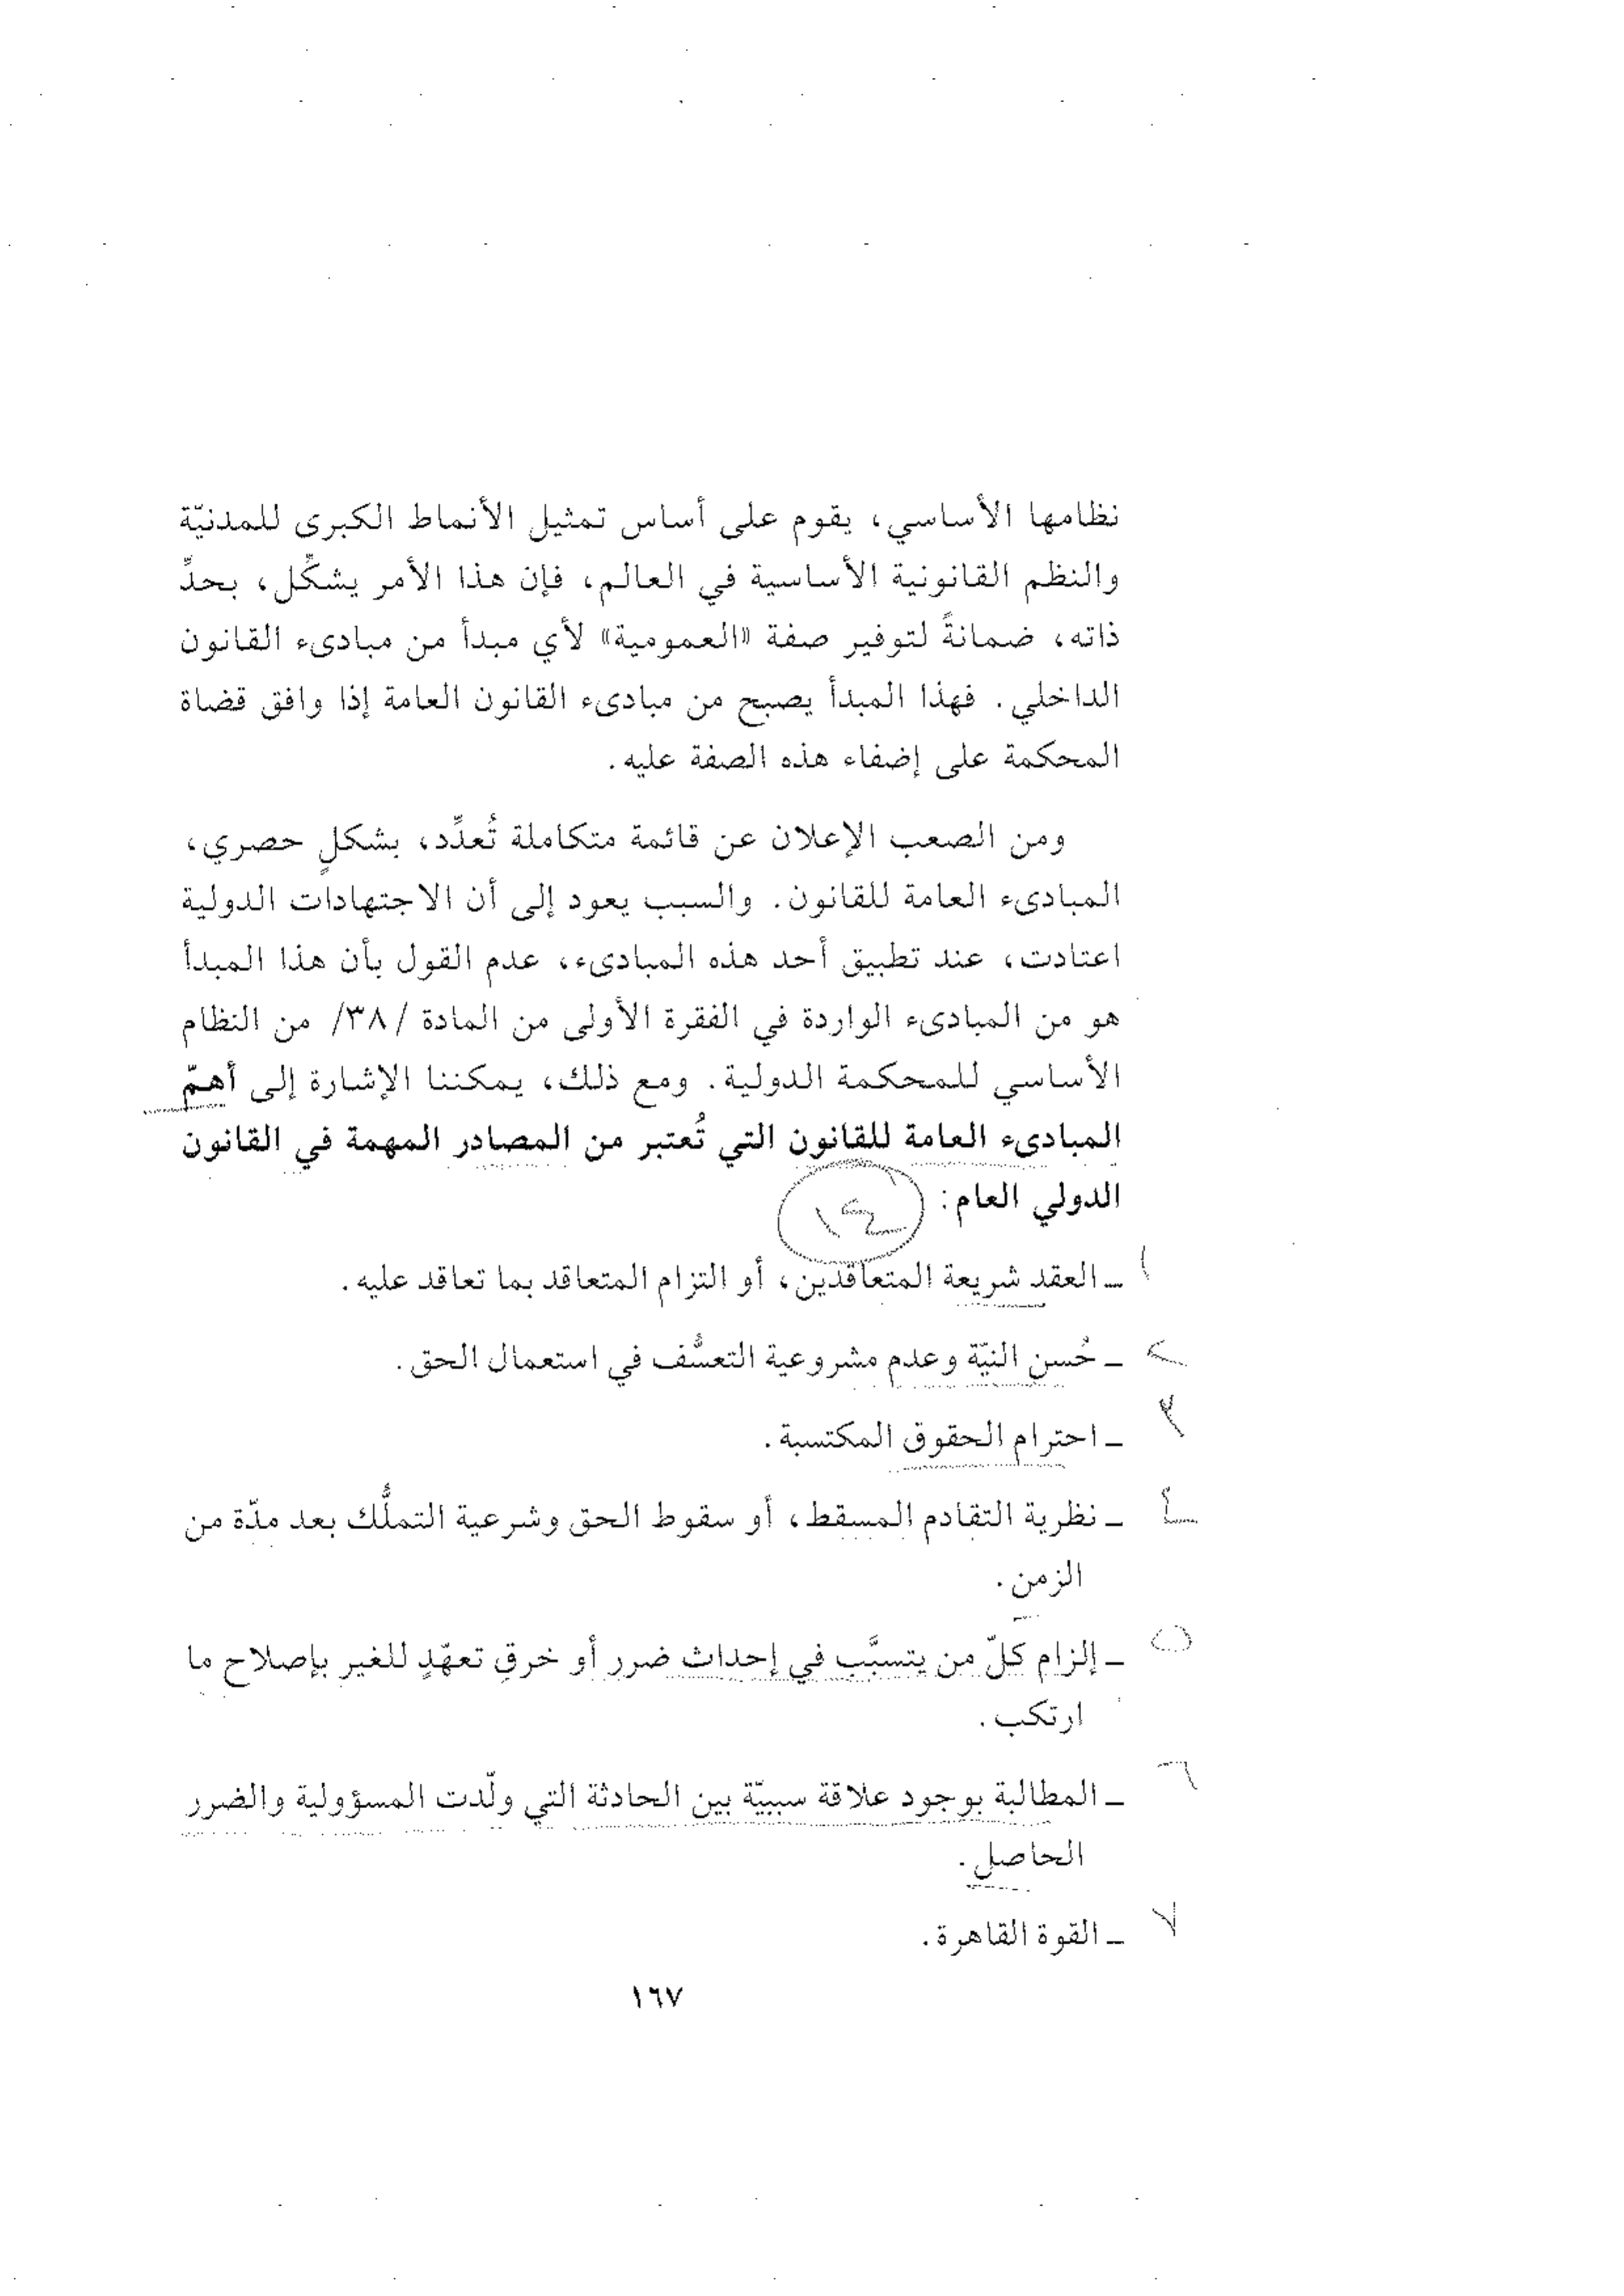 نظامها الأساسي، يقوم على أساس تمثيل الأنماط الكبرى للمدنيّة
والنظم القانونية الأساسية في العالم، فإن هذا الأمر يشكِّل، بحدِّ
ذاته، ضمانةً لتوفير صفة «العمومية» لأي مبدأ من مبادىء القانون
الداخلي. فهذا المبدأ يصبح من مبادىء القانون العامة إذا وافق قضاة
المحكمة على إضفاء هذه الصفة عليه.
ومن الصعب الإعلان عن قائمة متكاملة تُعدِّد، بشكلٍ حصري،
المبادىء العامة للقانون. والسبب يعود إلى أن الاجتهادات الدولية
اعتادت، عند تطبيق أحد هذه المبادىء، عدم القول بأن هذا المبدأ
هو من المبادىء الواردة في الفقرة الأولى من المادة /٣٨/ من النظام
الأساسي للمحكمة الدولية. ومع ذلك، يمكننا الإشارة إلى أهمّ
المبادىء العامة للقانون التي تُعتبر من المصادر المهمة في القانون
الدولي العام:
١ ـ العقد شريعة المتعاقدين، أو التزام المتعاقد بما تعاقد عليه.
٢ ـ حُسن النيّة وعدم مشروعية التعسُّف في استعمال الحق.
٣ ـ احترام الحقوق المكتسبة.
٤ ـ نظرية التقادم المسقط، أو سقوط الحق وشرعية التملُّك بعد مدّة من
الزمن.
٥ ـ إلزام كلّ من يتسبَّب في إحداث ضرر أو خرقِ تعهّدٍ للغير بإصلاح ما
ارتكب.
٦ ـ المطالبة بوجود علاقة سببيّة بين الحادثة التي ولّدت المسؤولية والضرر
الحاصل.
٧ ـ القوة القاهرة.
١٦٧